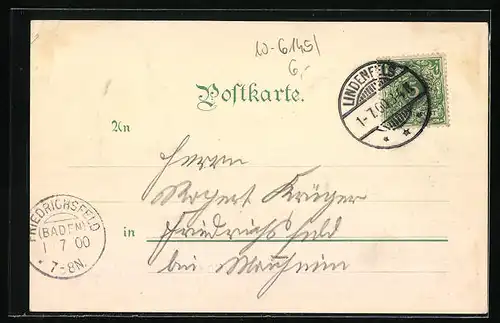 10-6145/
6,-
Postkarte.
LINDENFELS
1-7.00
5
An
Herrn
Krüger
in Friedrichsfeld
bei Mannheim
FRIEDRICHSFELD
(BADEN)
1 7 00
* 7-8N.